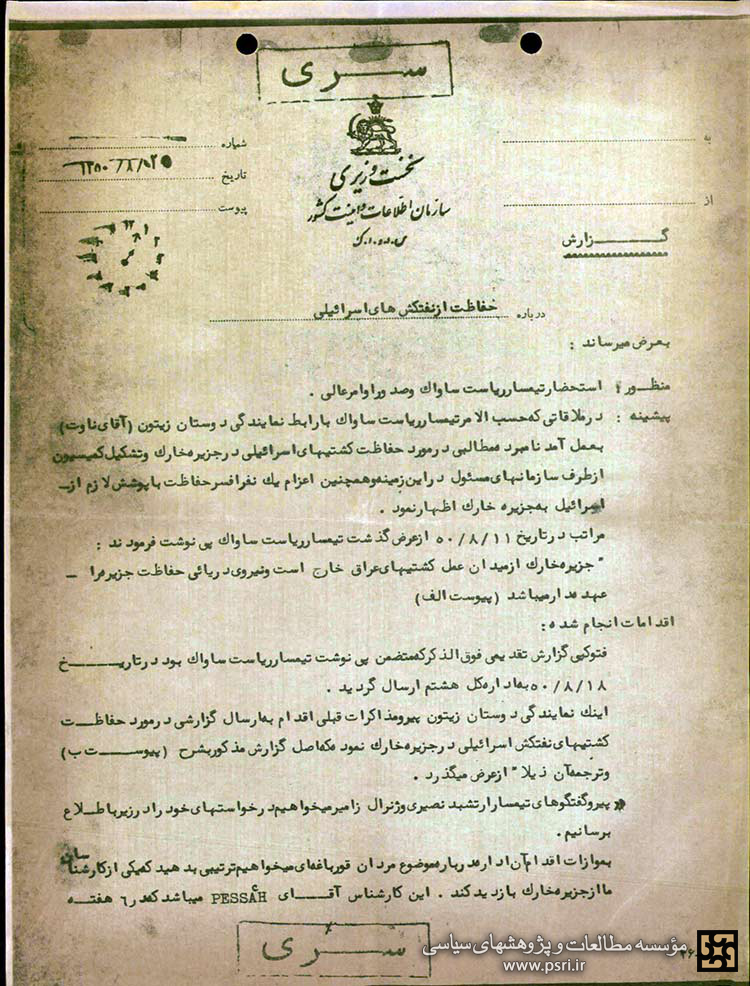 سری
نخست وزیری
سازمان اطلاعات و امنیت کشور
س.ا.و.ا.ک
شماره
تاریخ ۱۳۵۰/۸/۲۰
پیوست
به
از
گزارش
درباره حفاظت از نفتکش های اسرائیلی
بعرض میرساند :
منظور : استحضار تیمسار ریاست ساواک و صدور اوامر عالی .
پیشینه : در ملاقاتی که حسب الامر تیمسار ریاست ساواک با رابط نمایندگی دوستان زیتون (آقای ناوت)
بعمل آمد نامبرده مطالبی در مورد حفاظت کشتیهای اسرائیلی در جزیره خارک و تشکیل کمیسیون
از طرف سازمانهای مسئول در این زمینه و همچنین اعزام یک نفر افسر حفاظت با پوشش لازم از
اسرائیل به جزیره خارک اظهار نمود .
مراتب در تاریخ ۵۰/۸/۱۱ از عرض گذشت تیمسار ریاست ساواک پی نوشت فرمودند :
" جزیره خارک از میدان عمل کشتیهای عراق خارج است و نیروی دریائی حفاظت جزیره را
عهده دار میباشد (پیوست الف)
اقدامات انجام شده :
فتوکپی گزارش تقدیمی فوق الذکر که متضمن پی نوشت تیمسار ریاست ساواک بود در تاریخ
۵۰/۸/۱۸ به اداره کل هشتم ارسال گردید .
اینک نمایندگی دوستان زیتون پیرو مذاکرات قبلی اقدام به ارسال گزارشی در مورد حفاظت
کشتیهای نفتکش اسرائیلی در جزیره خارک نموده که اصل گزارش مذکور بشرح (پیوست ب)
و ترجمه آن ذیلا" از عرض میگذرد .
پیرو گفتگوهای تیمسار ارتشبد نصیری و ژنرال زامیر میخواهیم درخواستهای خود را در زیر باطلاع
برسانیم .
بموازات اقدام آن اداره درباره موضوع مردان قورباغه ای میخواهیم ترتیبی بدهید که یکی از کارشناسان
ما از جزیره خارک بازدید کند . این کارشناس آقای PESSAH میباشد که در ٦ هفته
سری
مؤسسه مطالعات و پژوهشهای سیاسی
www.psri.ir